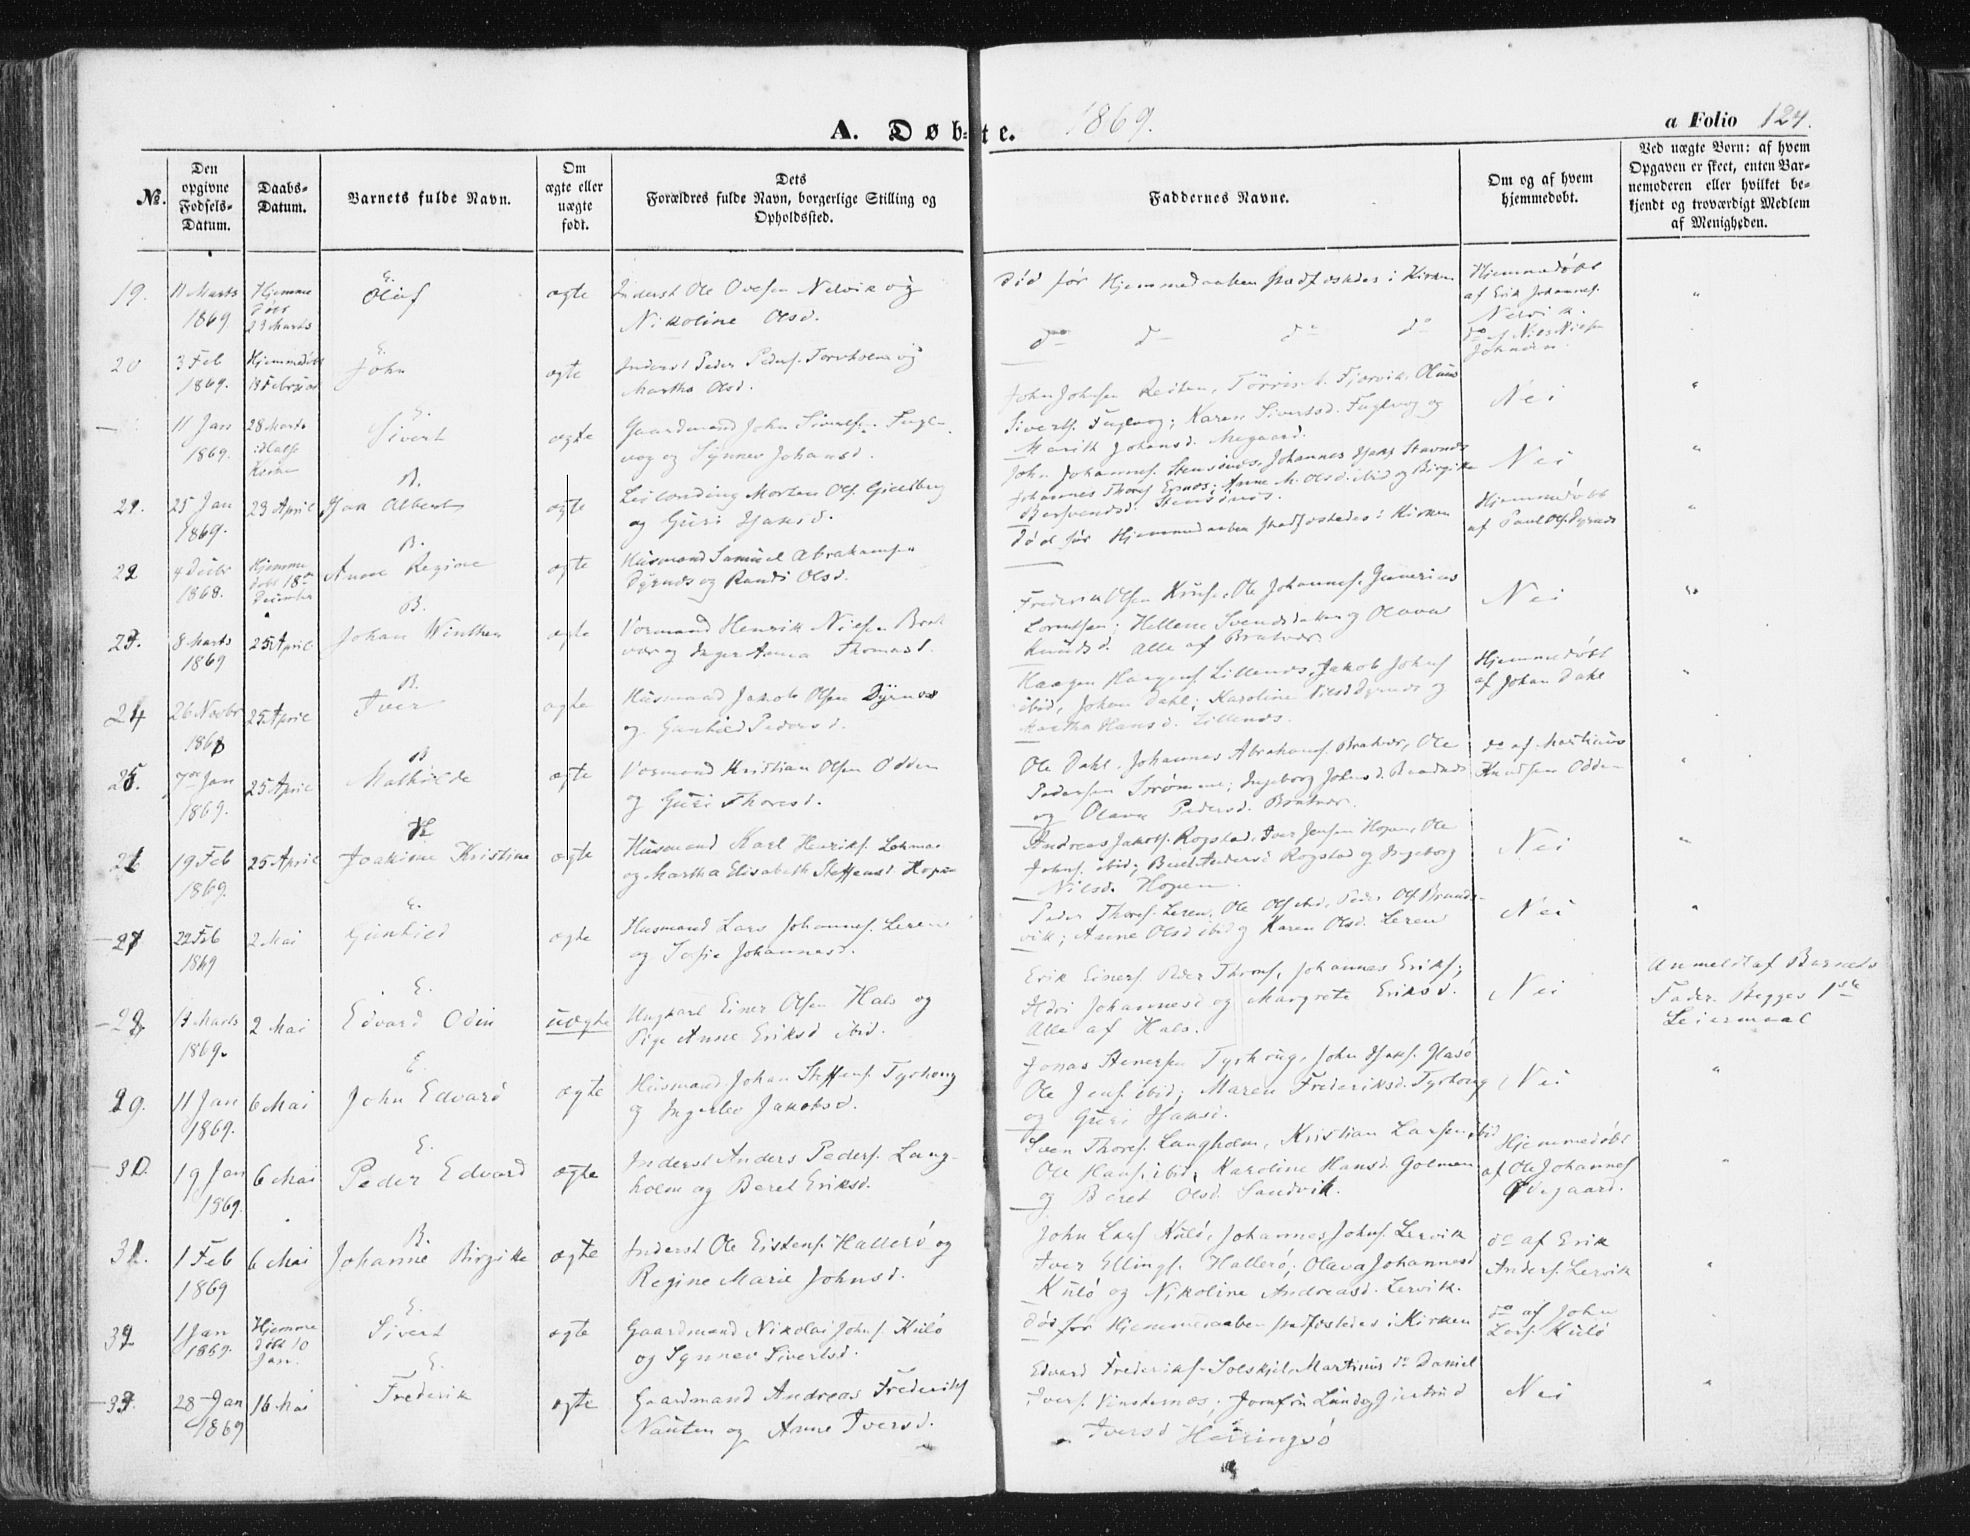 A. Døbte. 1869. a Folio 124.
No.
Den opgivne Fødsels-Datum.
Daabs-Datum.
Barnets fulde Navn.
Om ægte eller uægte født.
Dets Forældres fulde Navn, borgerlige Stilling og Opholdssted.
Faddernes Navne.
Om og af hvem hjemmedøbt.
Ved uægte Børn: af hvem Opgaven er skeet, enten Barnemoderen eller hvilket bekjendt og troværdigt Medlem af Menigheden.
19. 11 Marts 1869 Hjemme døbt 23 Marts
E.
Oluf
ægte
Inderst Ole Ovesen Nelvik og
Nikoline Olsd.
Død før Hjemmedaaben stadfæstedes i Kirken
Hjemmedøbt
af Erik Johannes.
Nelvik.
20 3 Feb 1869. Hjemmedøbt 13 Februar
E.
John
ægte
Inderst Peder Peders. Torvholm og
Martha Olsd.
do do do do
do af Nils Nilsen
— 11 Jan 1869. 28 Marts i Halse Kirke
E.
Sivert
ægte
Gaardmand John Sivertsen Fugl-
vog og Synnev Johansd.
John Johnsen Reiten, Tørris Fjærvik, Oluus
Siverts. Fuglvog; Karen Sivertsd. Fuglvog og
Marith Johansd. Megaard.
Nei
21. 25 Jan 1869. 23 April
B.
Isak Albert
ægte
Leilending Morten Ols. Gjeldberg
og Guri Isaksd.
John Johannes. Stensønes, Johannes Isaks. Stavnes
Johannes Thores. Ernes; Anne M. Olsd. ibid og Birgitte
Bersvendsd. Stensønes.
Nei
22 4 Decbr 1868. Hjemme døbt 18de December
B.
Anne Regine
ægte
Husmand Samuel Abrahamsen
Dyrnes og Randi Olsd.
Død før Hjemmedaaben stadfæstedes i Kirken
Hjemmedøbt
af Paul Ols. Dyrnes
23. 8 Marts 1869 25 April
B.
Johan Winther
ægte
Vormand Henrik Nilsen Brat
vær og Inger Anna Thomasd.
Frederik Olsen Kruse, Ole Johannes. Gunerius
Lorentsen; Hellene Svendsdatter og Olava
Knudsd. Alle af Bratvær
Nei
24 26 Novbr 1868 25 April
B.
Iver
ægte
Husmand Jakob Olsen Dyrnes
og Gunhild Pedersd.
Haagen Haagens. Lillenes, Jakob Johns.
ibid, Johan Dahl; Karoline Nilsd. Dyrnes og
Martha Hansd. Lillenes.
Hjemmedøbt
af Johan Dahl
25. 7de Jan 1869. 25 April
B
Mathilde
ægte
Vormand Kristian Olsen Odden
og Guri Thoresd.
Ole Dahl. Johannes Abrahams. Bratvær, Ole
Pedersen Sørømme; Ingeborg Johnsd.
og Olava Pedersd. Bratvær.
do af Martinus
Knudsen Odden
26 19 Feb 1869. 25 April
H
Joakime Kristine
ægte
Husmand Karl Henriks. Lohmar
og Martha Elisabeth Steffensd. Hopen
Andreas Jakobs. Rogstad, Iver Jensen Hopen, Ole
Johns. ibid; Beret Andersd. Rogstad og Ingeborg
Nilsd. Hopen.
Nei
27 22 Feb 1869 2 Mai
E.
Gunhild
ægte
Husmand Lars Johannes. Leren
og Sofie Johannesd.
Peder Thores. Leren, Ole Ols. ibid, Peder Ols. Brands-
vik; Anne Olsd ibid og Karen Olsd. Leren
Nei
28. 13 Marts 1869. 2 Mai
E.
Edvard Odin
uægte
Ungkarl Einer Olsen Hals og
Pige Anne Eriksd ibid.
Erik Einers. Peder Thrones. Johannes Eriks;
Johannesd og Margrete Eriksd.
Alle af Hals.
Nei
Anmeldt af Barnets
Fader. Begges 1ste
Leiermaal
29. 11 Jan 1869. 6 Mai
E.
John Edvard
ægte
Husmand Johan Steffens. Tyrhoug
og Ingerlev Jakobsd.
Jonas Stenersen Tyrhoug, John Isaks. Glasø
Ole Jens. ibid; Maren Frederiksd. Tyrhoug
og Guri Isaksd.
Nei
30. 19 Jan 1869. 6 Mai
E.
Peder Edvard
ægte
Inderst Anders Peders. Lang-
holm og Beret Eriksd.
Sven Thores. Langholm, Kristian Larsen ibid
Ole Hans. ibid; Karoline Hansd. Golmen
og Beret Olsd. Sandvik.
Hjemmedøbt
af Ole Johannes
Ødegaard.
31. 1 Feb 1869 6 Mai
B.
Johanne Birgitte
ægte
Inderst Ole Eistens. Hallerø og
Regine Marie Johnsd.
John Lars. Kulø, Johannes Johns. Lervik
Iver Ellings. Hallerø; Olava Johannesd
Kulø og Nikoline Andreasd. Lervik.
do af Erik
Anders. Lervik
32 1 Jan 1869. Hjemme døbt 10 Jan.
E.
Sivert
ægte
Gaardmand Nikolai Johns. Kulø
og Synnev Sivertsd.
Død før Hjemmedaaben stadfæstedes i Kirken
do af John
Lars. Kulø
33. 28 Jan 1869 16 Mai
E.
Frederik
ægte
Gaardmand Andreas Frederiks
Nauten og Anne Iversd.
Edvard Frederiks. Solskjel, Martinus do Daniel
Ivers. Vinsternes; Jomfru Lund og Gjertrud
Iversd Heiringsø
Nei